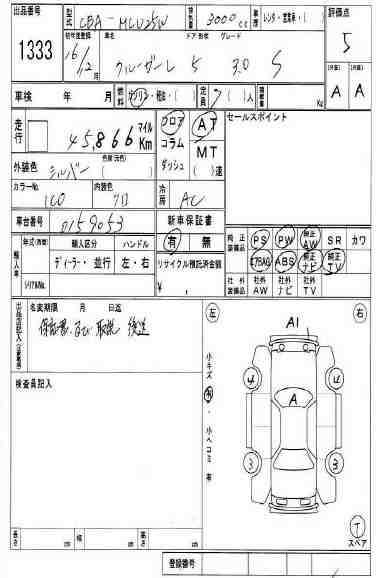 出品番号 1333
型式 CBA-MCU25W 排気量 3000cc 車歴 レンター・営業車・( ) 評価点 5
初年度登録 16/12月 車名 クルーガーL ドア形状 5 グレード 3.0 S
(外装) A (内装) A
車検 年 月 燃料 ガソリン・軽油・( ) 定員 7( )人 積載量 Kg
走行 45,866 マイル Km フロア AT セールスポイント
コラム MT
ダッシュ ( )速
外装色 色前(元色) シルバー ( )
カラーNo 1C0 内装色 クロ 冷房 AC
車台番号 0159053 新車保証書
有 無
純正装備品 PS PW 純正AW SR カワ
エアBAG ABS 純正ナビ 純正TV
社外装備品 社外AW 社外ナビ 社外TV
輸入車 年式(西暦) 輸入区分 ハンドル
ディーラー・並行 左・右
シリアルNo.
リサイクル預託済金額
¥
出品店記入(注意事項) 名変期限 月 日迄
保証書、取説 後送
検査員記入
左 右
A1
小キズ 有・小ヘコミ 有
4 4
A
3 3
T
スペア
長さ cm 幅 cm 高さ cm
登録番号